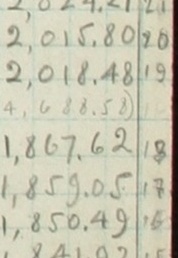 2,024.21 21
2,015.80 20
2,018.48 19
4,688.58)
1,867.62 18
1,859.05 17
1,850.49 16
1,841.92 15